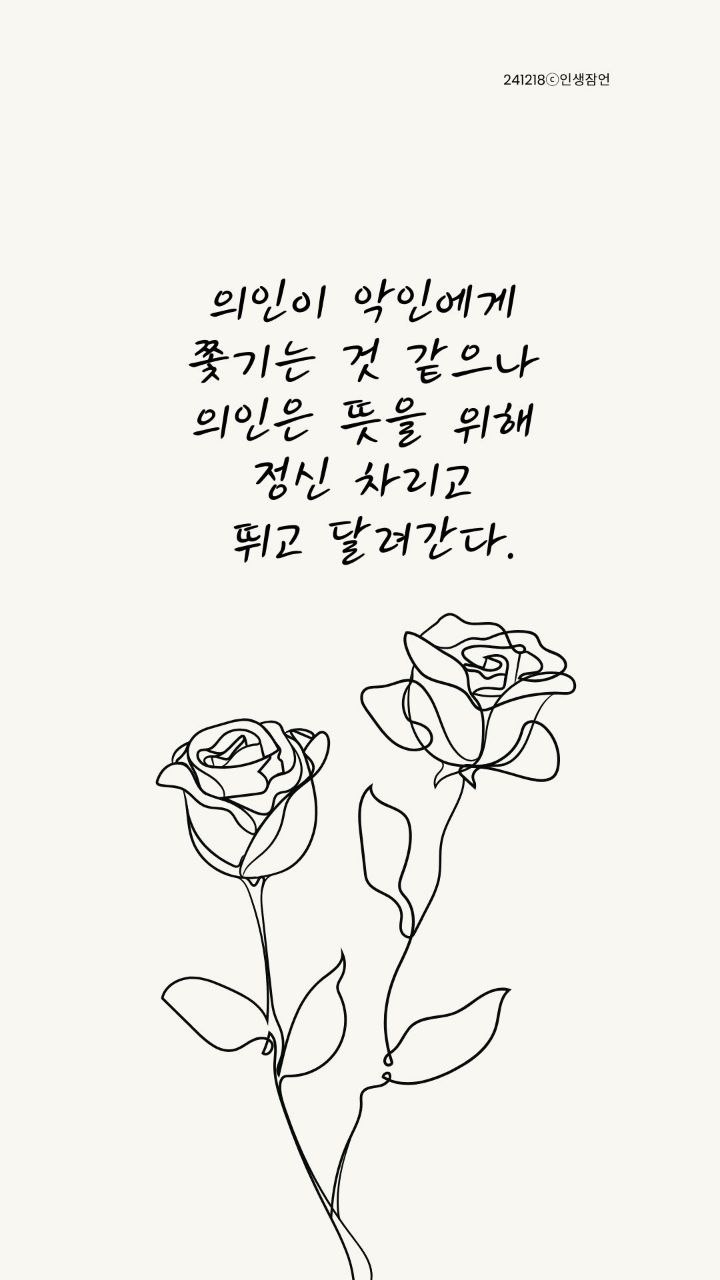 241218ⓒ인생잠언
의인이 악인에게
쫓기는 것 같으나
의인은 뜻을 위해
정신 차리고
뛰고 달려간다.